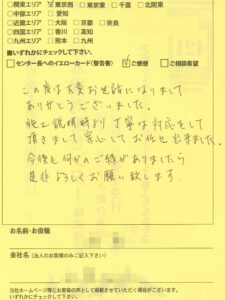 ○関東エリア ☑東京西 □東京東 □千葉 □北関東
○中部エリア □愛知
○近畿エリア □大阪 □京都 □兵庫
○四国エリア □香川 □高知
○九州エリア □熊本 □九州
■いずれかにチェックして下さい。
□センター長へのイエローカード(警告書) ☑ご感想 □ご相談希望
この度は大変お世話になりまして
ありがとうございました。
施工説明時より丁寧な対応をして
頂きまして安心してお任せ出来ました。
今後も何かのご縁がありましたら
是非よろしくお願い致します。
お名前・お役職
会社名(法人のお客様のみご記入下さい)
当社ホームページ等にお客様の声として掲載させていただく場合がございます。
いずれかにチェックして下さい。